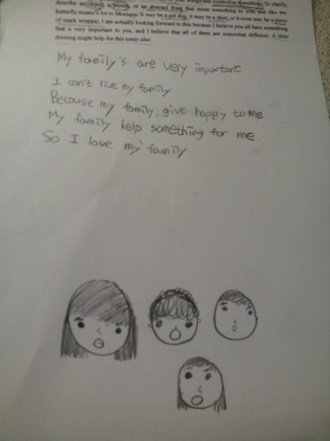 describe an object, a person, or an abstract thing that mean something to you, just like the
butterfly means a lot to Monique. It may be a pet dog, it may be a shirt, or it even may be a piece
of snack wrapper. I am actually looking forward to this because I believe you all have something
that is very important to you, and I believe that all of them are somewhat different. A little
drawing might help for this essay also.
My family's are very important.
I can't live my family
Because my family give happy to me
My family help something for me.
So I love my family